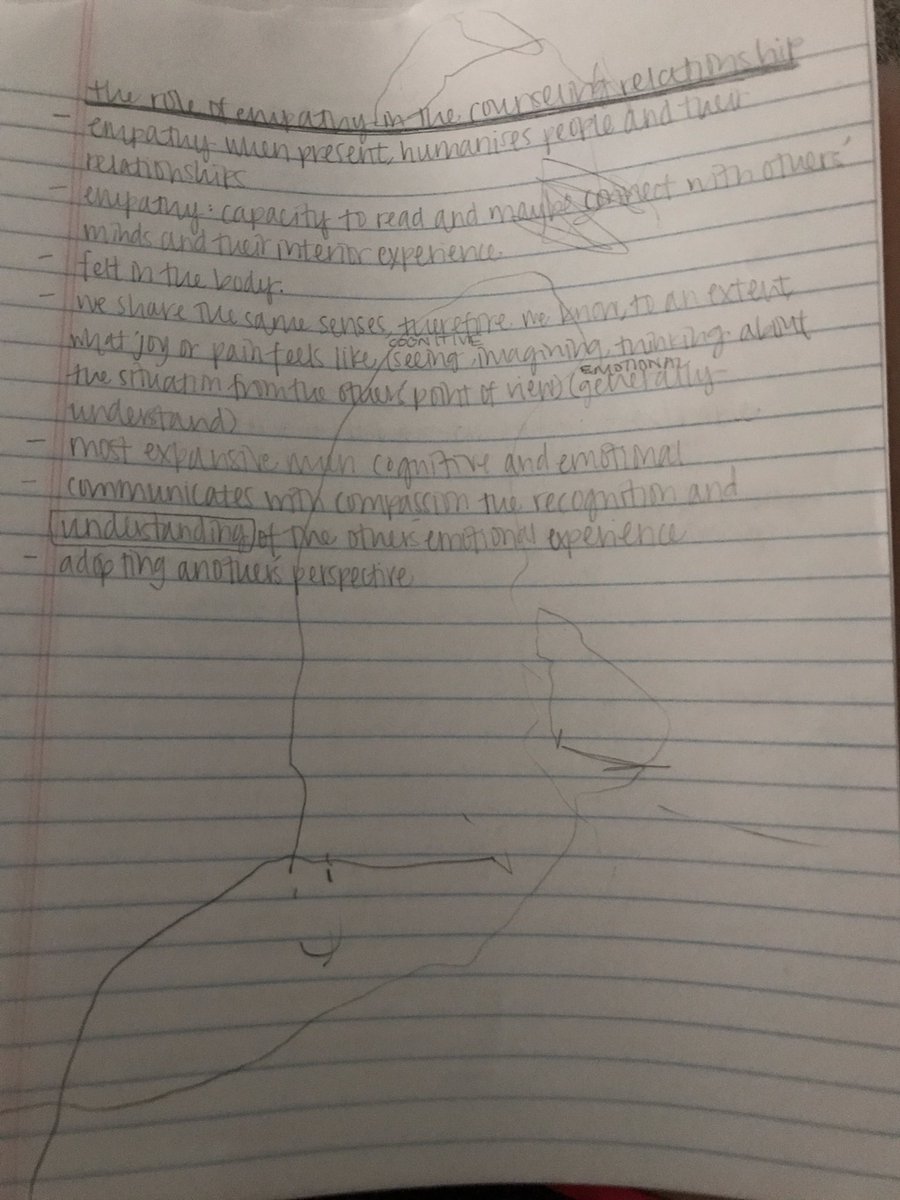 the role of empathy in the counseling relationship
- empathy when present, humanises people and their
relationships
- empathy: capacity to read and maybe connect with others'
minds and their interior experience.
- felt in the body.
- we share the same senses, therefore we know, to an extent
COGNITIVE
what joy or pain feels like (seeing, imagining, thinking about
EMOTIONAL
the situation from the other point of view) (generally
understand)
- most expansive when cognitive and emotional
- communicates with compassion the recognition and
understanding of the others emotional experience
- adopting another's perspective